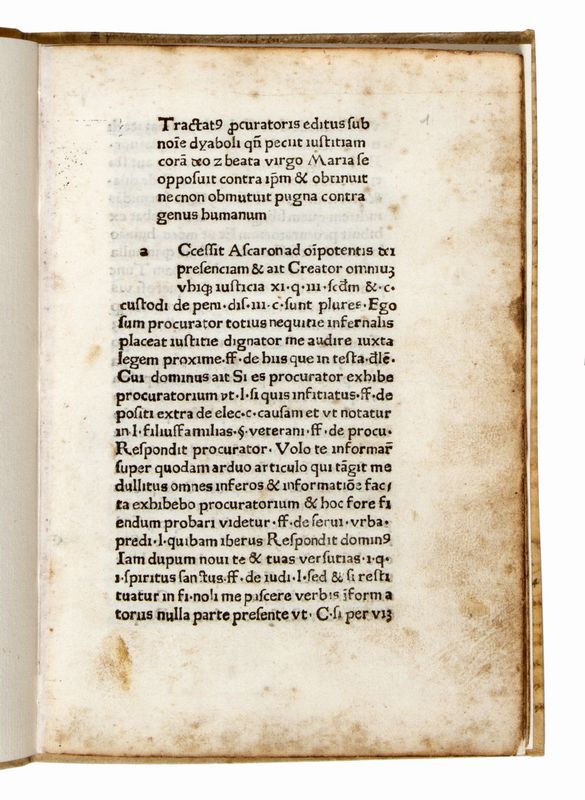 1
Tractatꝰ ꝓcuratoris editus sub
noīe dyaboli qn̄ peciit iusticiam
corā deo ⁊ beata virgo Maria se
opposuit contra ip̄m & obtinuit
necnon obmutuit pugna contra
genus humanum
a Ccessit Ascaron ad oīpotentis dei
presenciam & ait Creator omniuꝫ
vbiqꝫ iusticia xi·q·iii·scd̄m &·c·
custodi de peni·dis·iii·c·sunt plures·Ego
sum procurator totius nequitie infernalis
placeat iustitie dignator me audire iuxta
legem proxime·ff·de hiis que in testa·dl̄e·
Cui dominus ait Si es procurator exhibe
procuratorium vt·l·si quis infitiatus·ff·de
positi extra de elec·c·causam et vt notatur
in·l·filiusfamilias·§·veterani·ff·de procu·
Respondit procurator· Volo te informar̄
super quodam arduo articulo qui tāgit me
dullitus omnes inferos & informatiōe fac/
ta exhibebo procuratorium & hoc fore fi
endum probari videtur·ff·de serui·vrba·
predi·l·quibam iberus Respondit dominꝰ
Iam dupum noui te & tuas versutias·i·q·
i·spiritus sanctus·ff·de iudi·l·sed & si resti
tuatur in fi·noli me pascere verbis īforma
toriis nulla parte presente vt· C·si per viꝫ